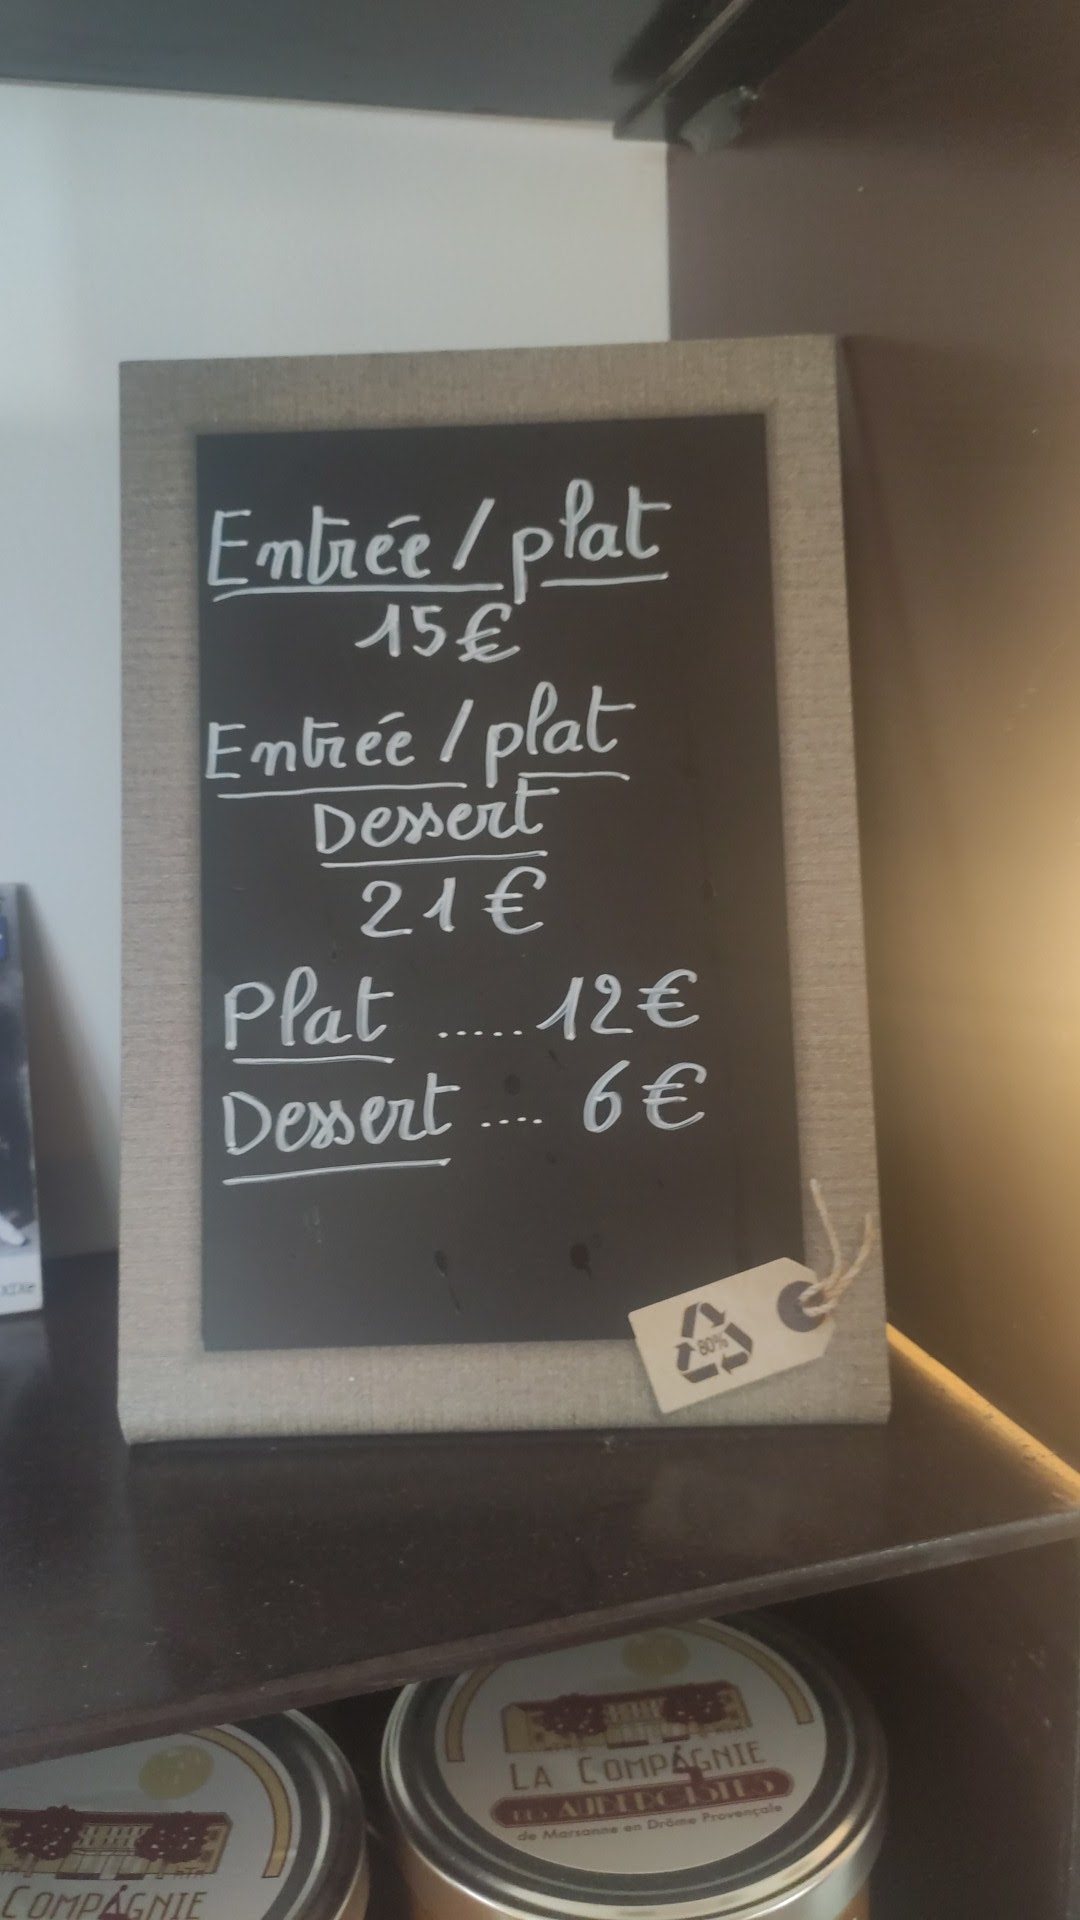 Entrée / plat
15€
Entrée / plat
Dessert
21€
Plat ..... 12€
Dessert .... 6€
80%
XIXe
LA COMPAGNIE
DES AUBERGISTES
de Marsanne en Drôme Provençale
COMPAGNIE